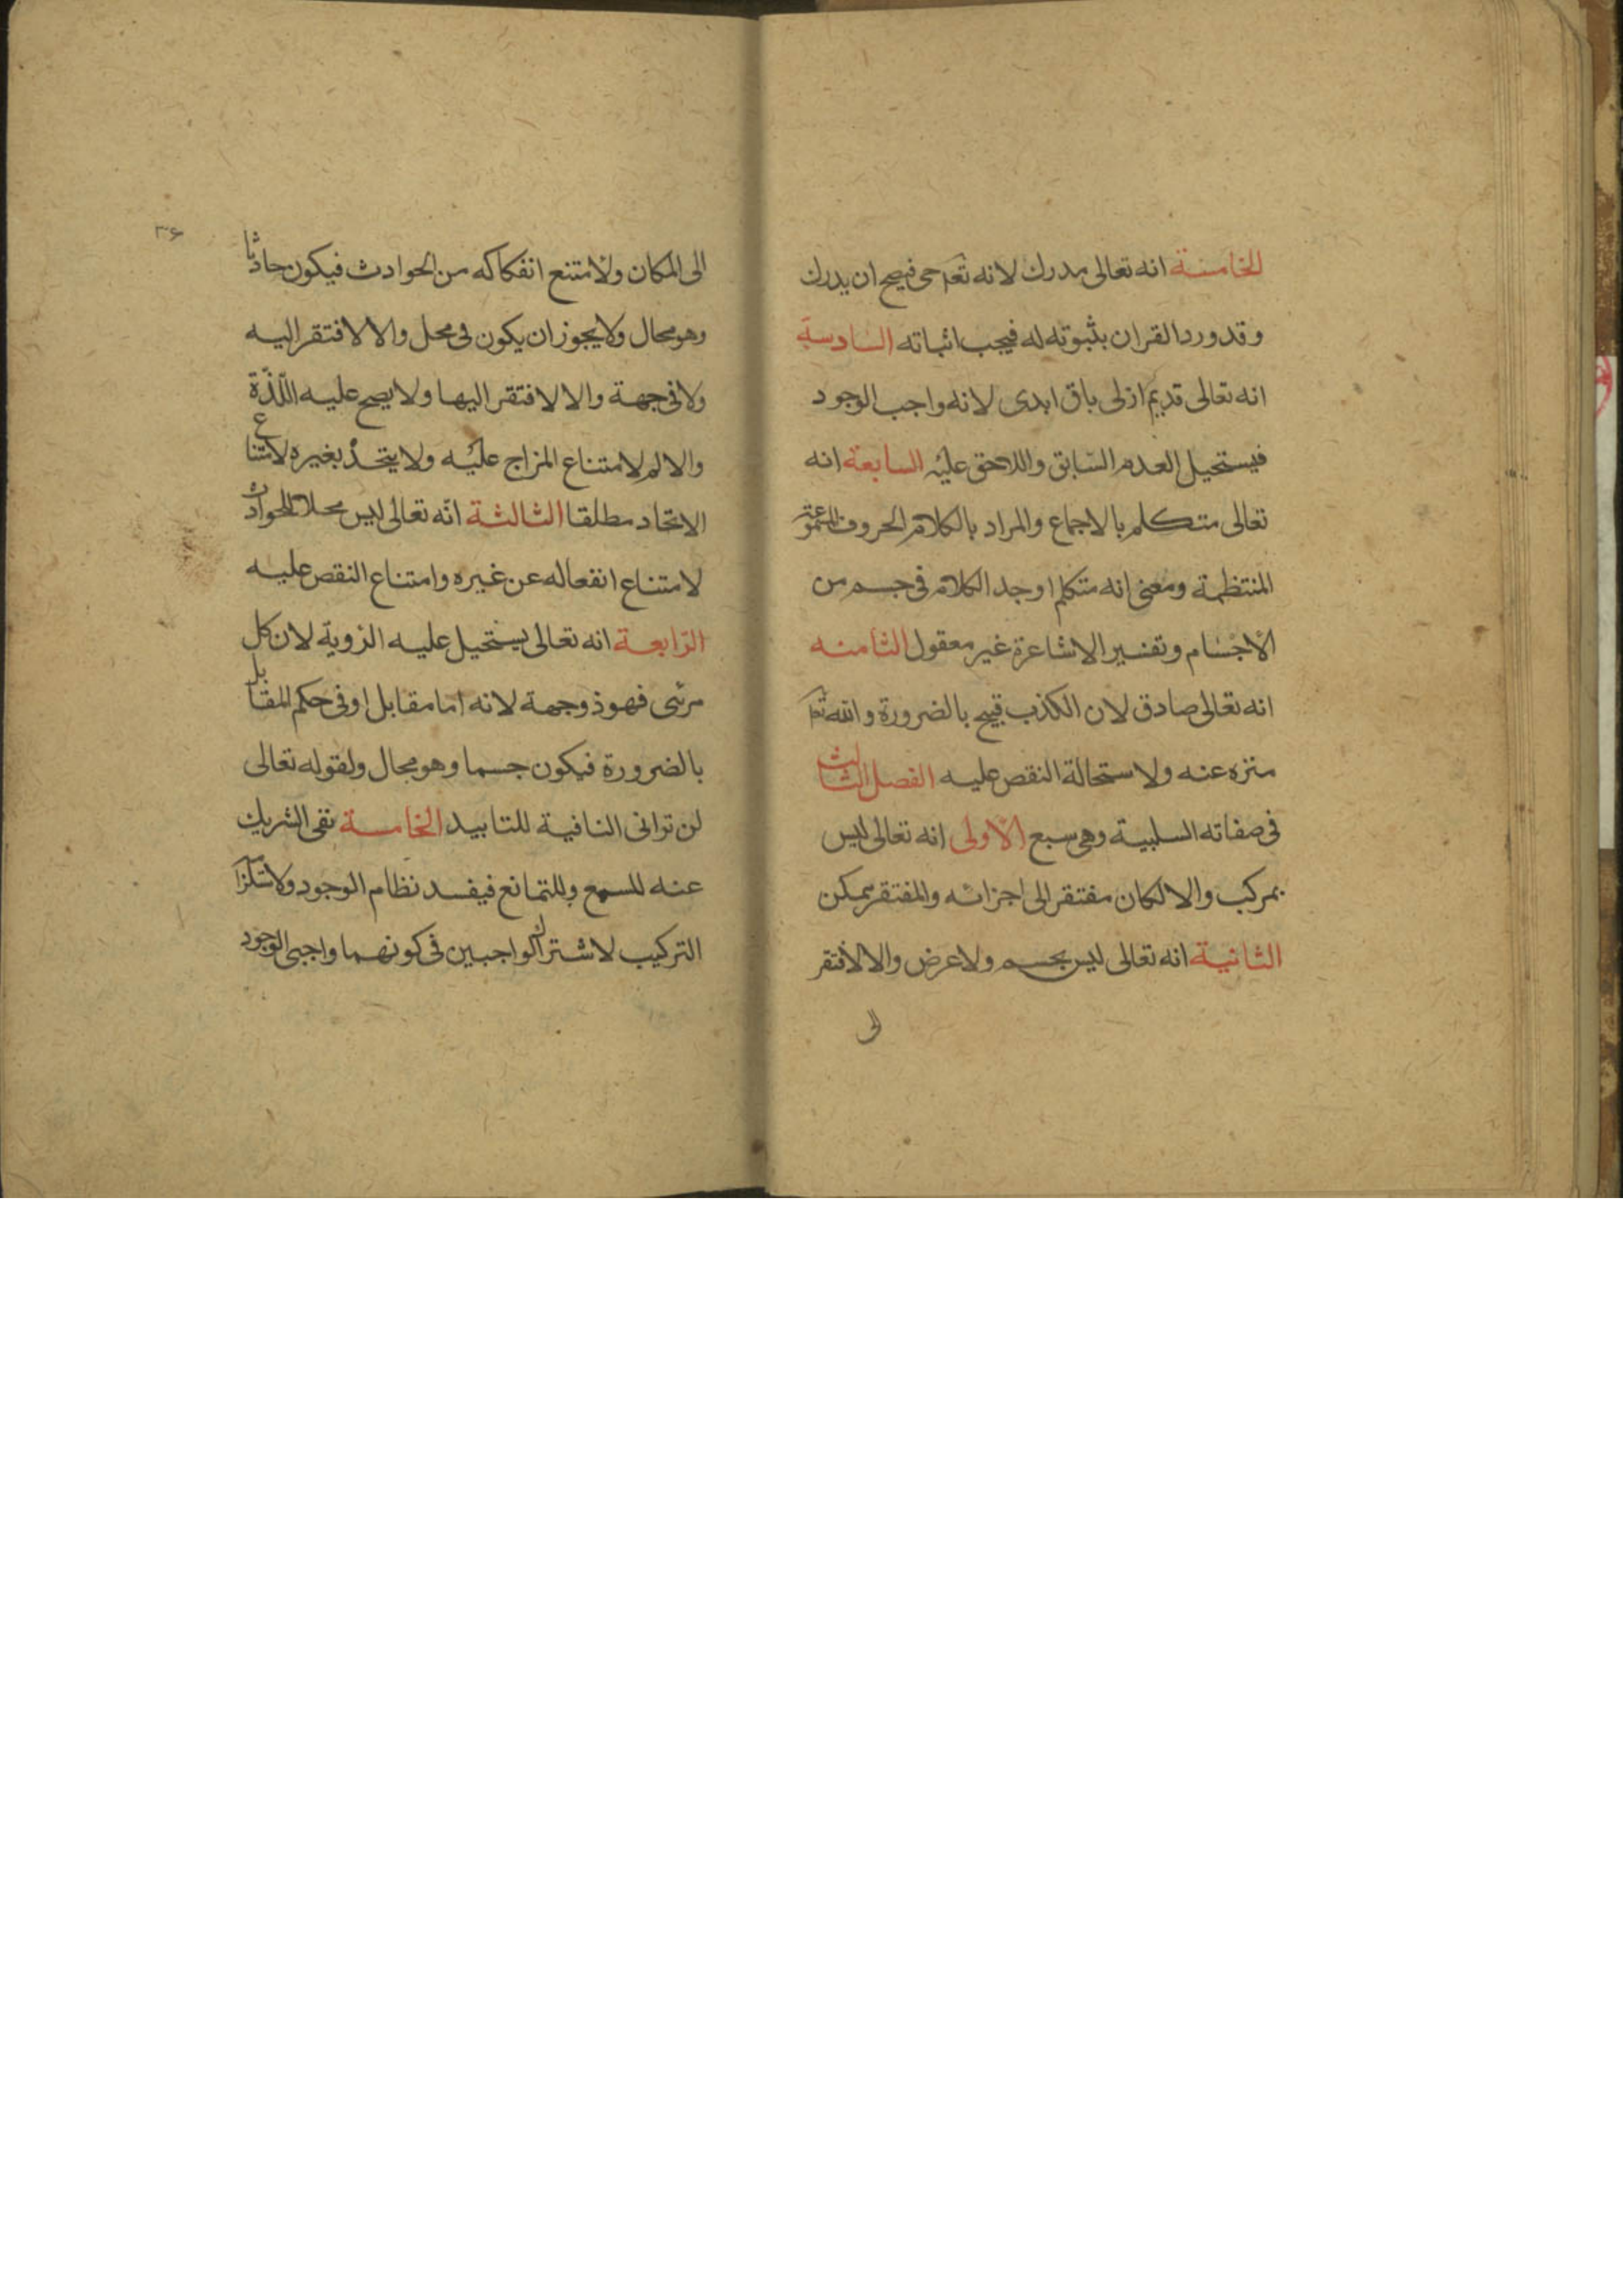 الخامسة انه تعالى مدرك لانه تعم حى فيصح ان يدرك
وقد ورد القران بثبوته له فيجب اثباته السادسة
انه تعالى قديم ازلى باق ابدى لانه واجب الوجود
فيستحيل العدم السّابق واللاحق عليه السابعة انه
تعالى متكلم بالاجماع والمراد بالكلام الحروف المسموعة
المنتظمة ومعنى انه متكلم اوجد الكلام فى جسم من
الاجسام وتفسير الاشاعرة غير معقول الثامنه
انه تعالى صادق لان الكذب قبيح بالضرورة والله تعا
منزه عنه ولاستحالة النقص عليه الفصل الثالث
فى صفاته السلبية وهى سبع الاولى انه تعالى ليس
بمركب والا لكان مفتقر الى اجزائه والمفتقر ممكن
الثانية انه تعالى ليس بجسم ولا عرض والا لافتقر
الى
٣۶
الى المكان ولامتنع انفكاكه من الحوادث فيكون حادثا
وهو محال ولا يجوز ان يكون فى محل والا لافتقر اليه
ولا فى جهة والا لافتقر اليها ولا يصح عليه اللّذّة
والالم لامتناع المزاج عليه ولا يتحد بغيره لامتناع
الاتحاد مطلقا الثالثة انّه تعالى ليس محلا للحوادث
لامتناع انفعاله عن غيره وامتناع النقص عليه
الرّابعة انه تعالى يستحيل عليه الرؤية لان كل
مرئى فهو ذو جهة لانه اما مقابل او فى حكم المقابل
بالضرورة فيكون جسما وهو محال ولقوله تعالى
لن ترانى النافية للتابيد الخامسة نفى الشريك
عنه للسمع وللتمانع فيفسد نظام الوجود ولاستلزامه
التركيب لاشتراك الواجبين فى كونهما واجبى الوجود